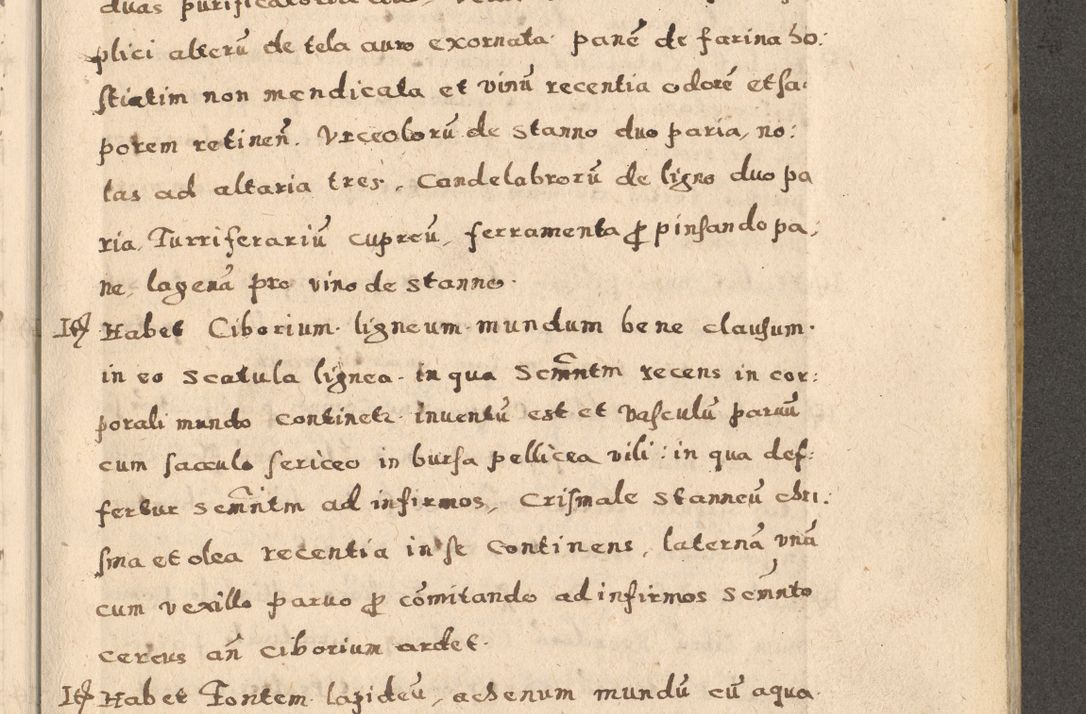 duas purificatoria
plici alterū de tela auro exornata. panē de farina ho:
stiatim non mendicata et vinū recentia odorē et sa:
porem retineñ. Vrceolorū de stanno duo paria, no:
las ad altaria tres, Candelabrorū de ligno duo pa
ria, Turriferariū cupreū, ferramenta ꝓ pinsando pa:
ne, lagenā pro vino de stanno.
Itē Habet Ciborium ligneum mundum bene clausum.
in eo scatula lignea in qua Scm̄ntm recens in cor:
porali mundo continetr inventū est et vasculū parvū
cum sacculo sericeo in bursa pellicea vili: in qua def:
fertur scm̄ntm ad infirmos, Crismale stanneū chri:
sma et olea recentia in se continens, laternā vnā
cum vexillo paruo ꝓ cōmitando ad infirmos scm̄nto
cereus añ Ciborium ardet.
Itē Habet Fontem lapideū, aehenum mundū cū aqua